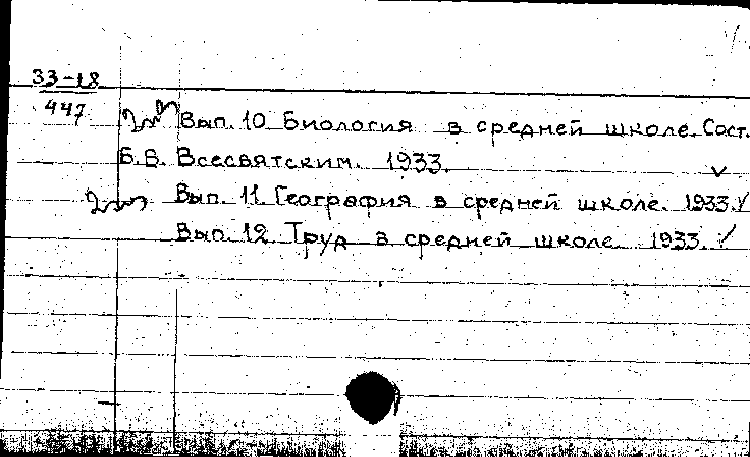 33-18
447
Вып. 10 Биология в средней школе. Сост.
Б.В. Всесвятским. 1933.
Вып. 11. География в средней школе. 1933.
Вып. 12. Труд в средней школе. 1933.